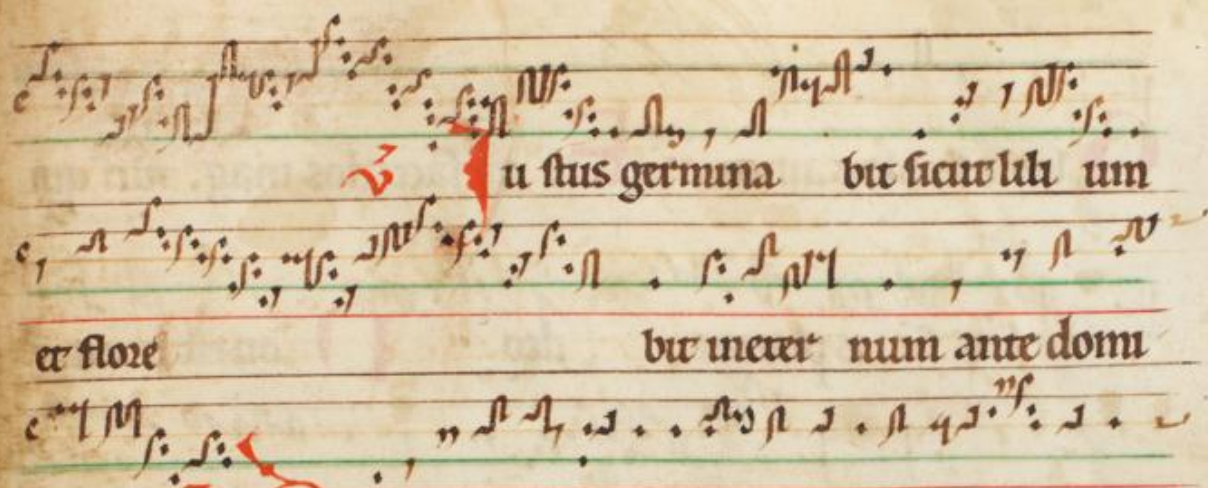 V Iustus germina bit sicut lili um
et flore bit ineter num ante domi